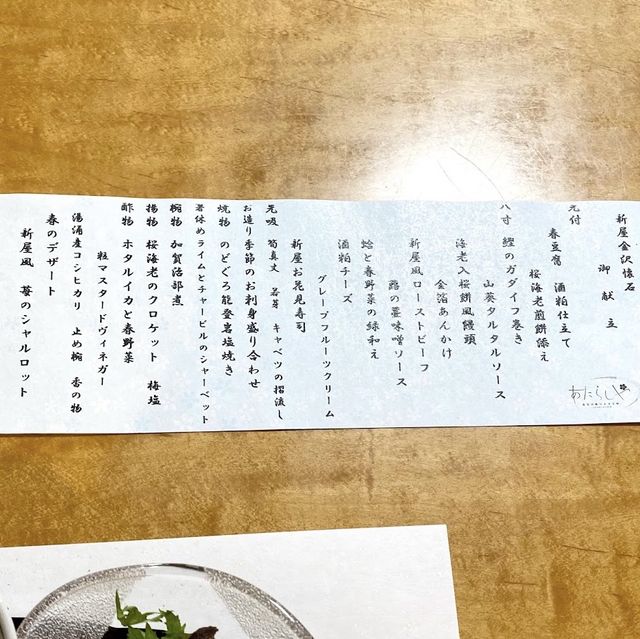 新屋金沢懐石
御献立
先付
春豆腐 酒粕仕立て
桜海老煎餅添え
八寸 鰹のガダイフ巻き
山葵タルタルソース
海老入桜餅風饅頭
金箔あんかけ
新屋風ローストビーフ
蕗の薹味噌ソース
蛤と春野菜の緑和え
酒粕チーズ
グレープフルーツクリーム
新屋お花見寿司
先吸 筍真丈 若芽 キャベツの摺流し
お造り季節のお刺身盛り合わせ
焼物 のどぐろ能登岩塩焼き
箸休めライムとチャービルのシャーベット
椀物 加賀治部煮
揚物 桜海老のクロケット 梅塩
酢物 ホタルイカと春野菜
粒マスタードヴィネガー
湯涌産コシヒカリ 止め椀 香の物
春のデザート
新屋風 苺のシャルロット
あたらしや